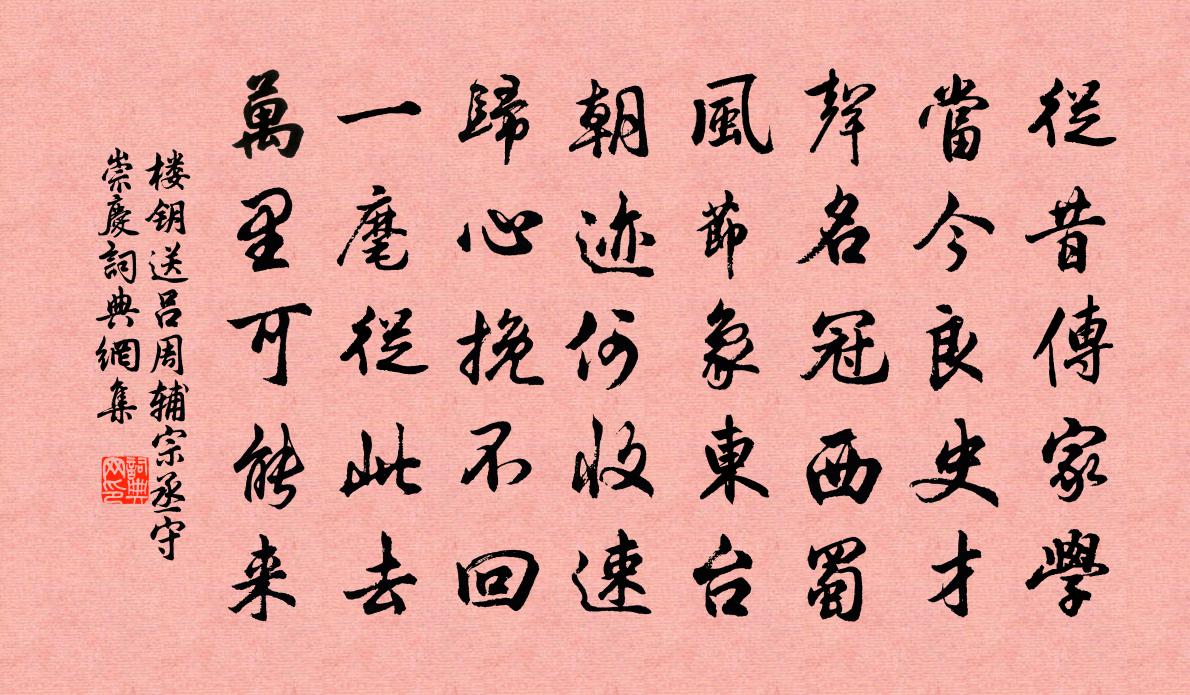 從昔傳家學
當今良史才
聲名冠西蜀
風節象東台
朝迹何收速
歸心挽不回
一麾從此去
萬里可能来
楼钥送吕周辅宗丞守
崇慶詞典網集
詞典
网印